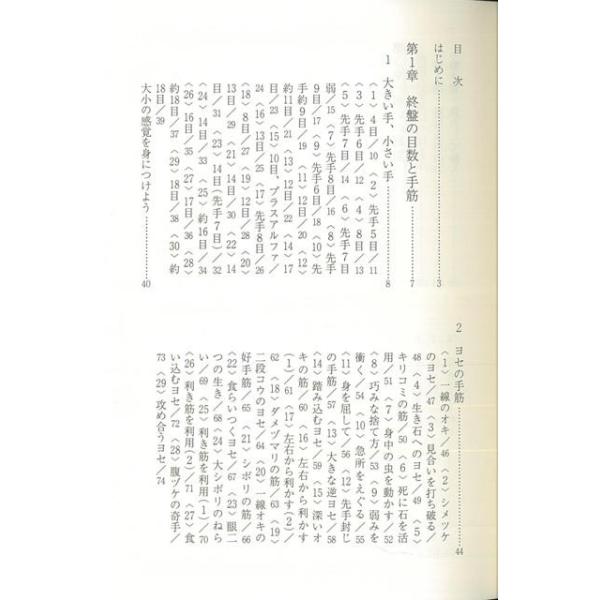 目次
はじめに……………3
第1章 終盤の目数と手筋……………7
1 大きい手、小さい手……………8
〈1〉4目/10 〈2〉先手5目/11
〈3〉先手6目/12 〈4〉8目/13
〈5〉先手7目/14 〈6〉先手7目
弱/15 〈7〉先手8目/16 〈8〉先手
9目/17 〈9〉先手6目/18 〈10〉先
手約9目/19 〈11〉12目/20 〈12〉
約11目/21 〈13〉12目/22 〈14〉17
目/23 〈15〉10目、プラスアルファ/
24 〈16〉13目/25 〈17〉先手8目/26
〈18〉8目/27 〈19〉12目/28 〈20〉
13目/29 〈21〉12目/30 〈22〉14
目/31 〈23〉14目(先手7目)/32
〈24〉14目/33 〈25〉約16目/34
〈26〉16目/35 〈27〉17目/36 〈28〉
約18目/37 〈29〉18目/38 〈30〉約
18目/39
大小の感覚を身につけよう……………40
2 ヨセの手筋……………44
〈1〉一線のオキ/46 〈2〉シメツケ
のヨセ/47 〈3〉見合いを打ち破る/
48 〈4〉生き石へのヨセ/49 〈5〉
キリコミの筋/50 〈6〉死に石を活
用/51 〈7〉身中の虫を動かす/52
〈8〉巧みな捨て方/53 〈9〉弱みを
衝く/54 〈10〉急所をえぐる/55
〈11〉身を屈して/56 〈12〉先手封じ
の手筋/57 〈13〉大きな逆ヨセ/58
〈14〉踏み込むヨセ/59 〈15〉深いオ
キの筋/60 〈16〉左右から利かす
(1)/61 〈17〉左右から利かす(2)/
62 〈18〉ダメヅマリの筋/63 〈19〉
二段コウのヨセ/64 〈20〉一線オキの
好手筋/65 〈21〉シボリの筋/66
〈22〉食らいつくヨセ/67 〈23〉眼二
つの生き/68 〈24〉大シボリのねら
い/69 〈25〉利き筋を利用(1)/70
〈26〉利き筋を利用(2)/71 〈27〉食
い込むヨセ/72 〈28〉腹ヅケの奇手/
73 〈29〉攻め合うヨセ/74